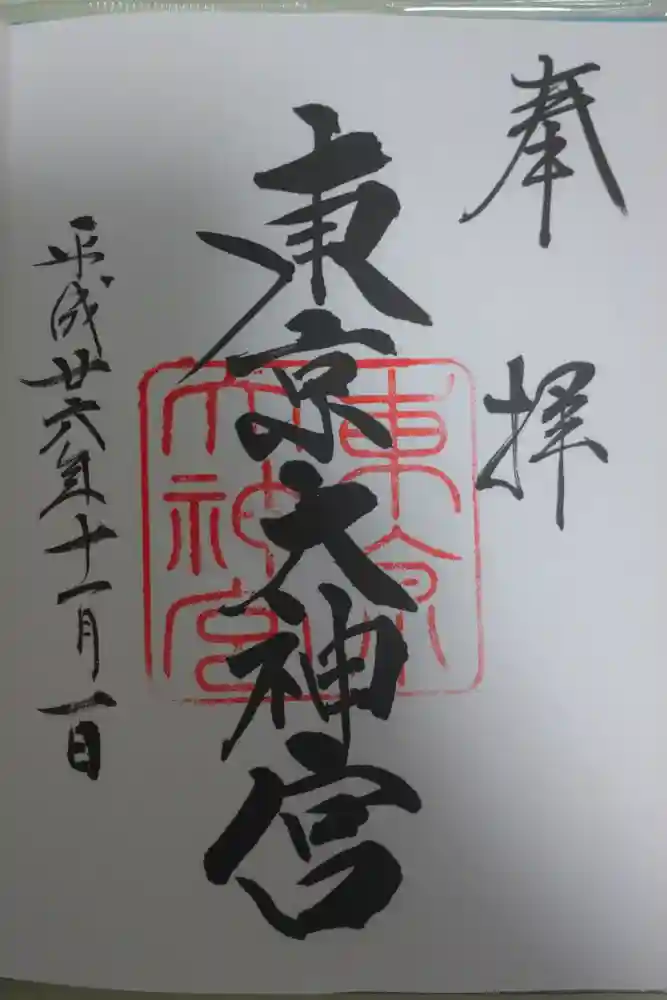 奉拝
東京大神宮
東京大神宮
平成廿六年十一月一日